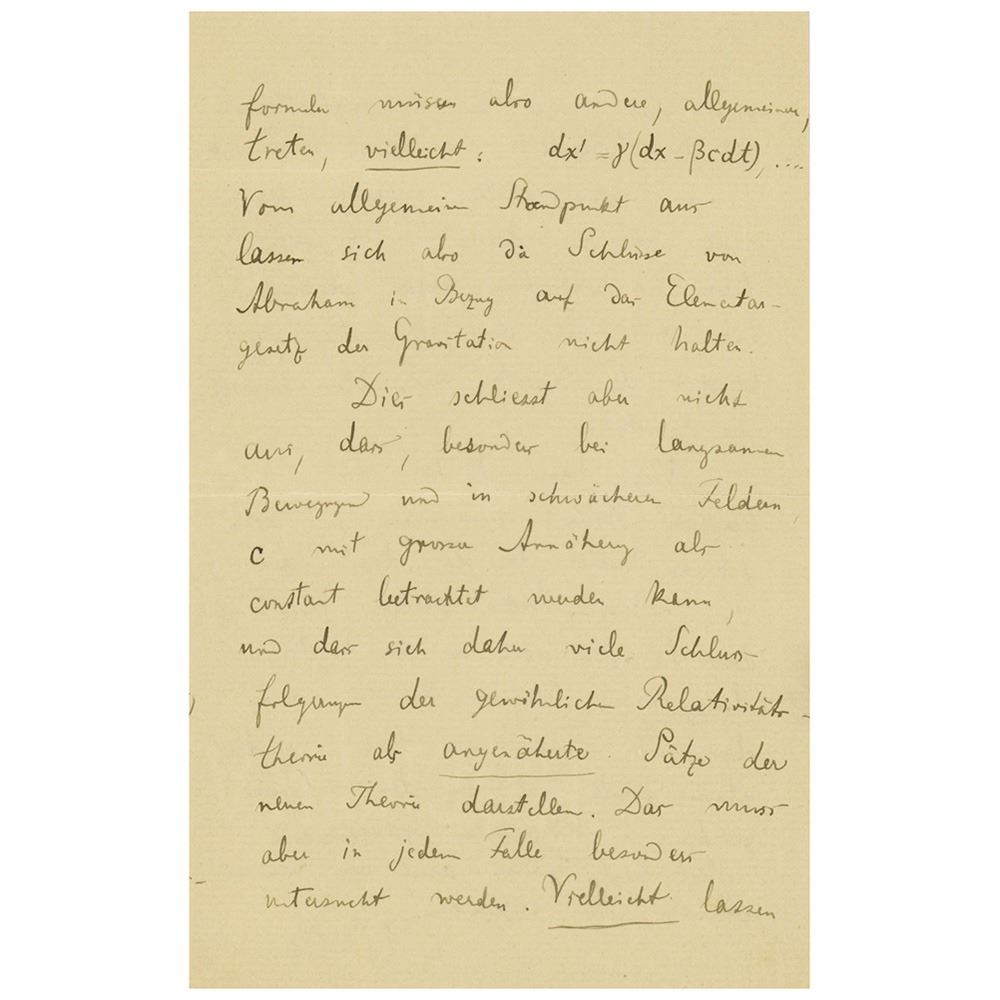 formeln müssen also andere, allgemeinere,
treten, vielleicht: dx' = γ(dx − βcdt), ....
Vom allgemeinen Standpunkt aus
lassen sich also die Schlüsse von
Abraham in Bezug auf das Elementar-
gesetz der Gravitation nicht halten.
Dies schliesst aber nicht
aus, dass, besonders bei langsamen
Bewegungen und in schwächeren Feldern,
c mit grosser Annäherung als
constant betrachtet werden kann,
und dass sich daher viele Schluss-
folgerungen der gewöhnlichen Relativitäts-
theorie als angenäherte Sätze der
neuen Theorie darstellen. Das muss
aber in jedem Falle besonders
untersucht werden. Vielleicht lassen